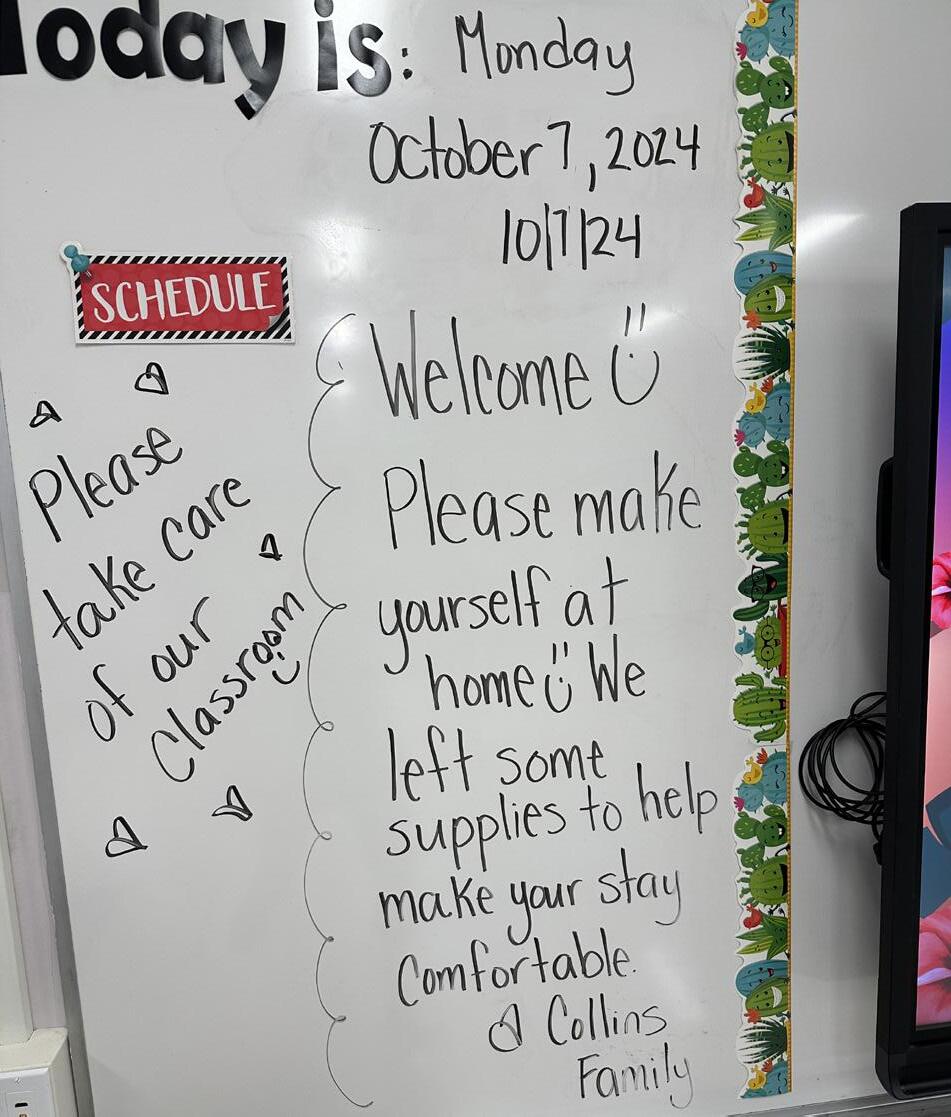 Today is: Monday
October 7, 2024
10/7/24
SCHEDULE
Please
take care
of our
Classroom
Welcome
Please make
yourself at
home We
left some
supplies to help
make your stay
Comfortable.
Collins
Family